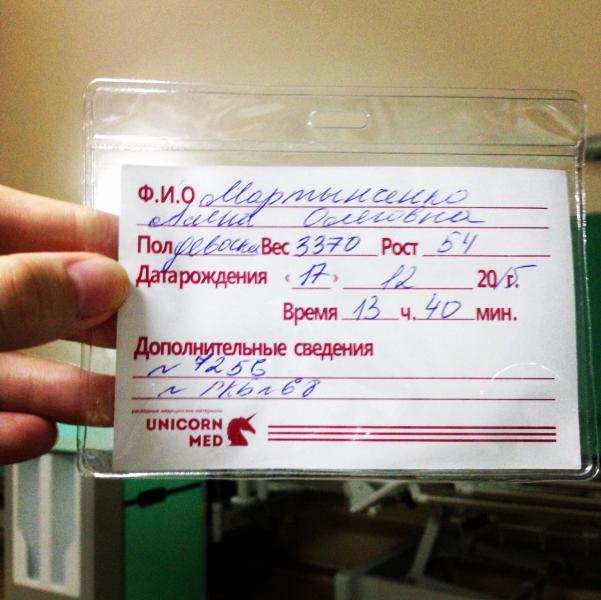 Ф.И.О Мартыненко
Олеговна
Пол девочка Вес 3370 Рост 54
Дата рождения «17» 12 2015г.
Время 13 ч. 40 мин.
Дополнительные сведения
N 7256
расходные медицинские материалы
UNICORN
MED